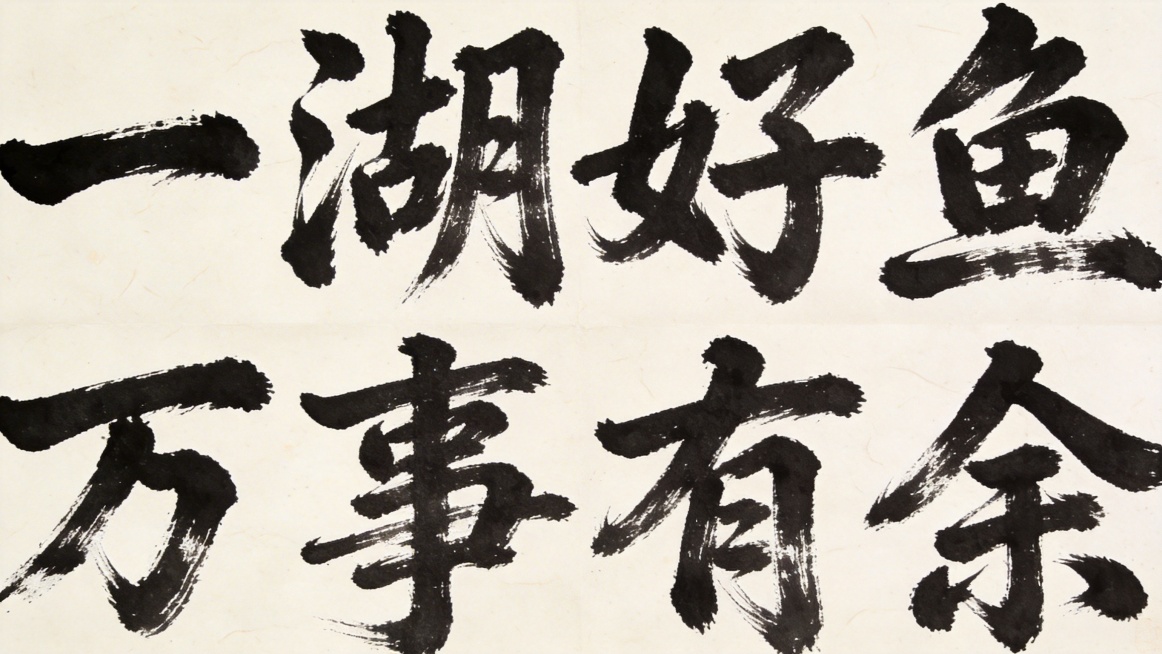 一湖好鱼
万事有余